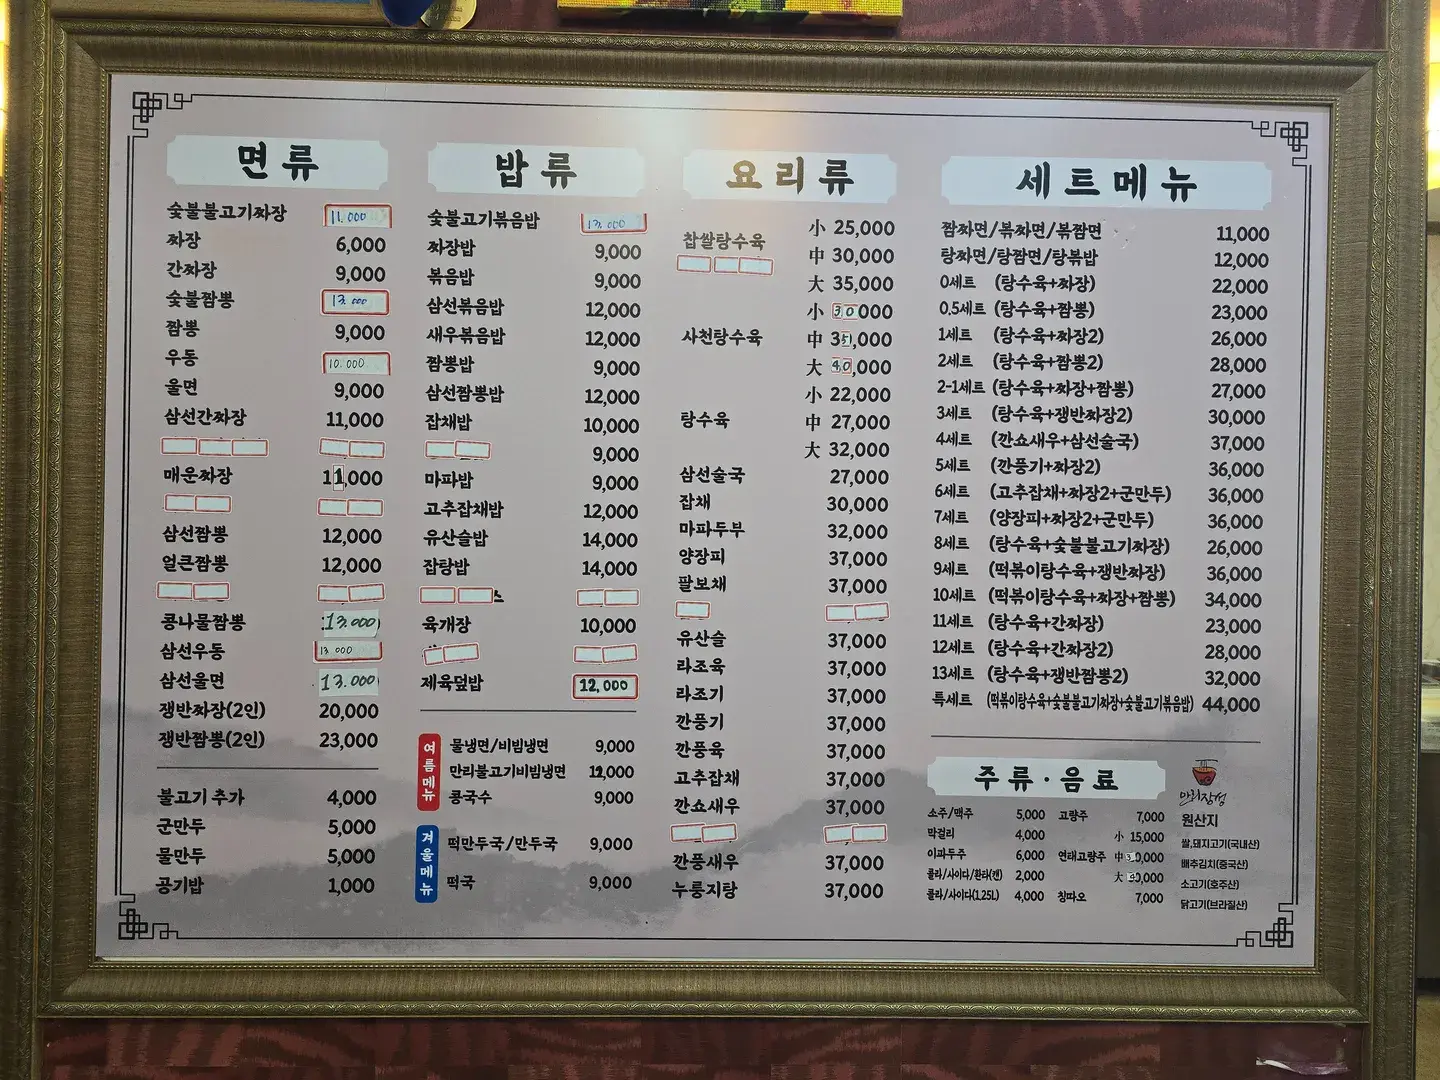 면류
숯불불고기짜장 11.000
짜장 6,000
간짜장 9,000
숯불짬뽕 13.000
짬뽕 9,000
우동 10.000
울면 9,000
삼선간짜장 11,000
매운짜장 11,000
삼선짬뽕 12,000
얼큰짬뽕 12,000
콩나물짬뽕 13.000
삼선우동 13.000
삼선울면 13.000
쟁반짜장(2인) 20,000
쟁반짬뽕(2인) 23,000
불고기 추가 4,000
군만두 5,000
물만두 5,000
공기밥 1,000
밥류
숯불고기볶음밥 13.000
짜장밥 9,000
볶음밥 9,000
삼선볶음밥 12,000
새우볶음밥 12,000
짬뽕밥 9,000
삼선짬뽕밥 12,000
잡채밥 10,000
9,000
마파밥 9,000
고추잡채밥 12,000
유산슬밥 14,000
잡탕밥 14,000
스
육개장 10,000
제육덮밥 12,000
여름메뉴
물냉면/비빔냉면 9,000
만리불고기비빔냉면 12,000
콩국수 9,000
겨울메뉴
떡만두국/만두국 9,000
떡국 9,000
요리류
찹쌀탕수육
小 25,000
中 30,000
大 35,000
사천탕수육
小 30,000
中 35,000
大 40,000
탕수육
小 22,000
中 27,000
大 32,000
삼선술국 27,000
잡채 30,000
마파두부 32,000
양장피 37,000
팔보채 37,000
유산슬 37,000
라조육 37,000
라조기 37,000
깐풍기 37,000
깐풍육 37,000
고추잡채 37,000
깐쇼새우 37,000
깐풍새우 37,000
누룽지탕 37,000
세트메뉴
짬짜면/볶짜면/볶짬면 11,000
탕짜면/탕짬면/탕볶밥 12,000
0세트 (탕수육+짜장) 22,000
0.5세트 (탕수육+짬뽕) 23,000
1세트 (탕수육+짜장2) 26,000
2세트 (탕수육+짬뽕2) 28,000
2-1세트 (탕수육+짜장+짬뽕) 27,000
3세트 (탕수육+쟁반짜장2) 30,000
4세트 (깐쇼새우+삼선술국) 37,000
5세트 (깐풍기+짜장2) 36,000
6세트 (고추잡채+짜장2+군만두) 36,000
7세트 (양장피+짜장2+군만두) 36,000
8세트 (탕수육+숯불불고기짜장) 26,000
9세트 (떡볶이탕수육+쟁반짜장) 36,000
10세트 (떡볶이탕수육+짜장+짬뽕) 34,000
11세트 (탕수육+간짜장) 23,000
12세트 (탕수육+간짜장2) 28,000
13세트 (탕수육+쟁반짬뽕2) 32,000
특세트 (떡볶이탕수육+숯불불고기짜장+숯불고기볶음밥) 44,000
주류·음료
소주/맥주 5,000
막걸리 4,000
이과두주 6,000
콜라/사이다/환타(캔) 2,000
콜라/사이다(1.25L) 4,000
고량주 7,000
연태고량주
小 15,000
中
大
칭따오 7,000
만리장성
원산지
쌀,돼지고기(국내산)
배추김치(중국산)
소고기(호주산)
닭고기(브라질산)